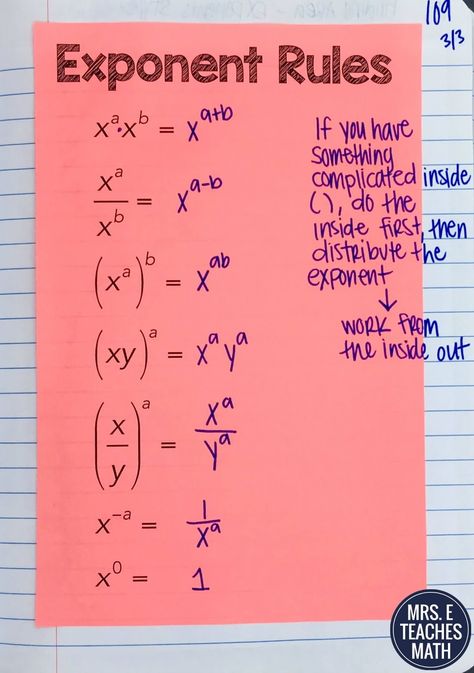 109
3/3
Exponent Rules
xᵃ·xᵇ = xᵃ⁺ᵇ
xᵃ/xᵇ = xᵃ⁻ᵇ
(xᵃ)ᵇ = xᵃᵇ
(xy)ᵃ = xᵃyᵃ
(x/y)ᵃ = xᵃ/yᵃ
x⁻ᵃ = 1/xᵃ
x⁰ = 1
If you have
something
complicated inside
( ), do the
inside first, then
distribute the
exponent
↓
work from
the inside out
MRS. E
TEACHES
MATH